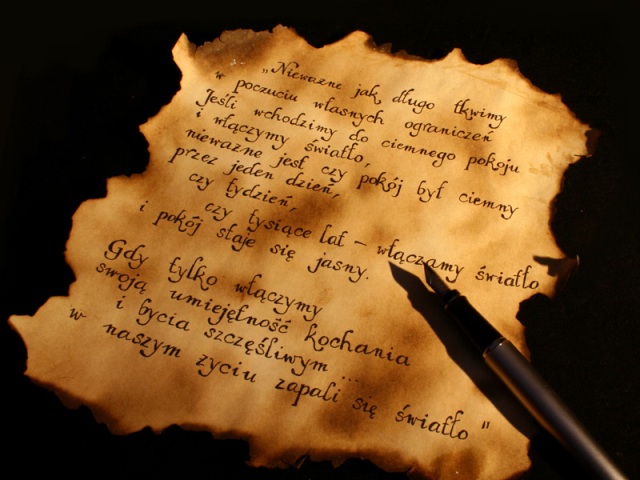 „Nieważne jak długo tkwimy
w poczuciu własnych ograniczeń
Jeśli wchodzimy do ciemnego pokoju
i włączymy światło,
nieważne jest czy pokój był ciemny
przez jeden dzień,
czy tydzień,
czy tysiące lat – włączamy światło
i pokój staje się jasny.
Gdy tylko włączymy
swoją umiejętność kochania
i bycia szczęśliwym...
w naszym życiu zapali się światło"